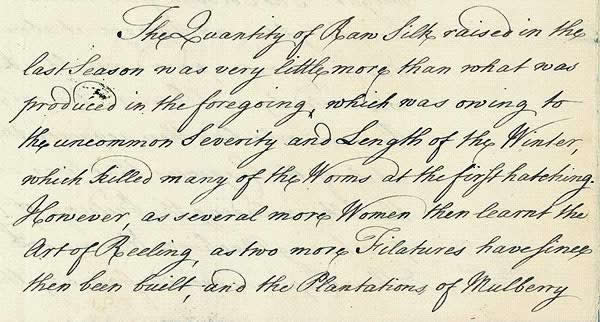 The Quantity of Raw Silk raised in the
last Season was very little more than what was
produced in the foregoing, which was owing to
the uncommon Severity and Length of the Winter,
which killed many of the Worms at the first hatching.
However, as several more Women then learnt the
Art of Reeling, as two more Filatures have since
then been built, and the Plantations of Mulberry